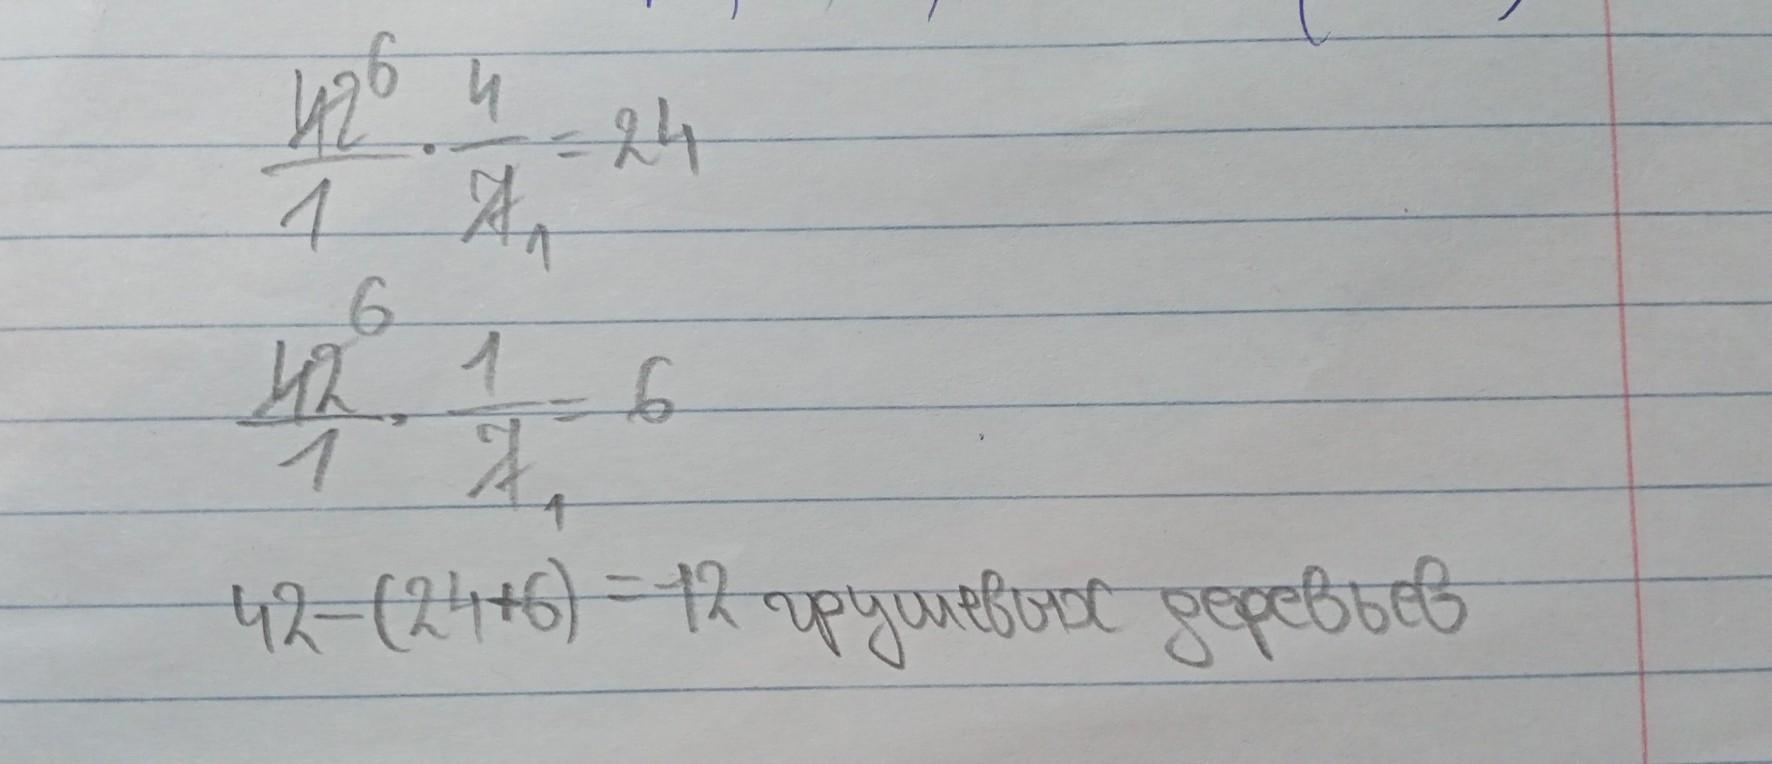 42⁶/1 · 4/7₁ = 24
42⁶/1 · 1/7₁ = 6
42-(24+6) = 12 грушевых деревьев